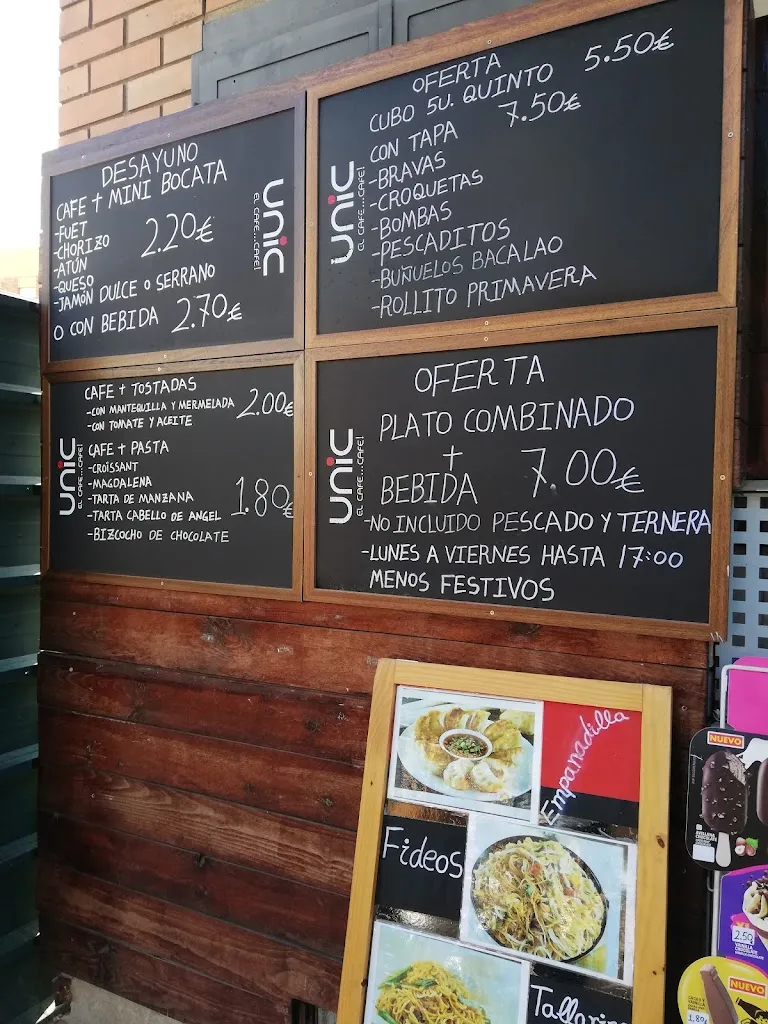 DESAYUNO
CAFE + MINI BOCATA
-FUET
-CHORIZO
-ATÚN
-QUESO
2.20€
-JAMÓN DULCE O SERRANO
O CON BEBIDA 2.70€
UNiC
EL CAFE...CAFE!
OFERTA
CUBO 5U. QUINTO 5.50€
CON TAPA 7.50€
-BRAVAS
-CROQUETAS
-BOMBAS
-PESCADITOS
-BUÑUELOS BACALAO
-ROLLITO PRIMAVERA
UNiC
EL CAFE...CAFE!
CAFE + TOSTADAS
-CON MANTEQUILLA Y MERMELADA 2.00€
-CON TOMATE Y ACEITE
CAFE + PASTA
-CROISSANT
-MAGDALENA
-TARTA DE MANZANA
-TARTA CABELLO DE ANGEL 1.80€
-BIZCOCHO DE CHOCOLATE
UNiC
EL CAFE...CAFE!
OFERTA
PLATO COMBINADO
+
BEBIDA 7.00€
-NO INCLUIDO PESCADO Y TERNERA
-LUNES A VIERNES HASTA 17:00
MENOS FESTIVOS
UNiC
EL CAFE...CAFE!
Empanadilla
Fideos
NUEVO
2.50
VANILLA
CHOCOLATE
NUEVO
1.80